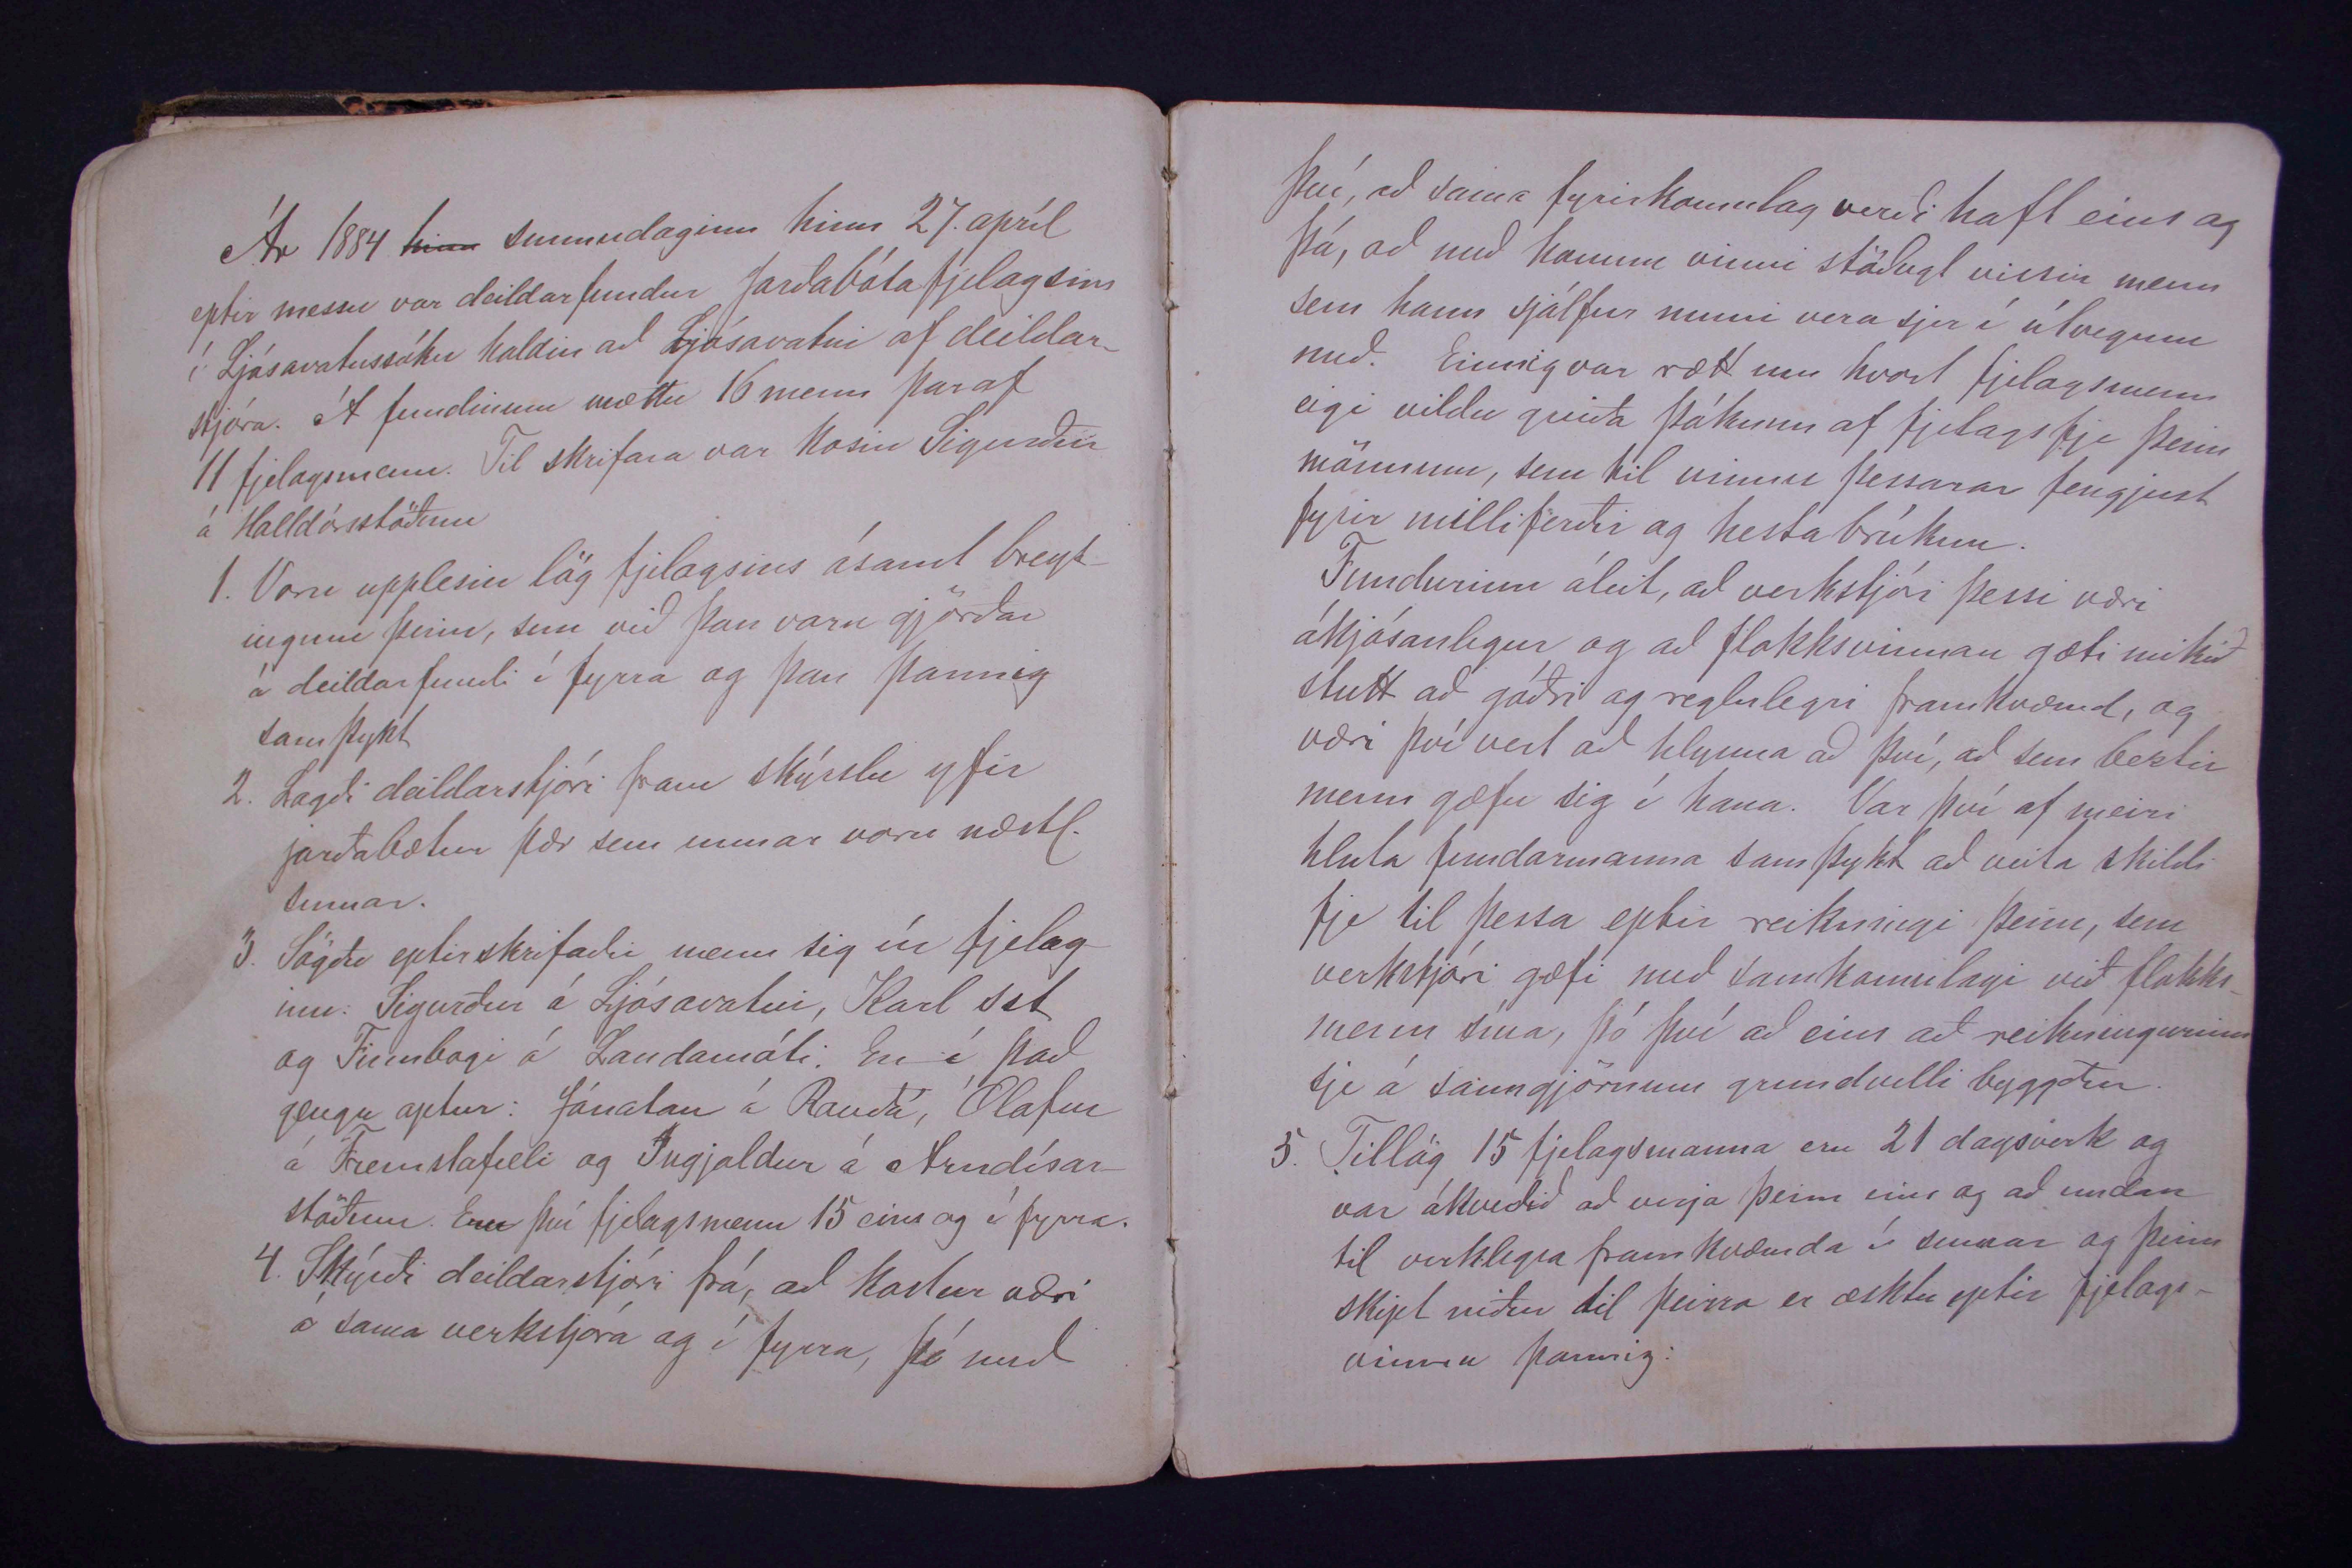 Ár 1884 hinn sunnudaginn hinn 27. apríl
eptir messu var deildarfundur Jarðabótafjelagsins
í Ljósavatnssókn haldin að Ljósavatni af deildar-
stjóra. Á fundinum mættu 16 menn þaraf
11 fjelagsmenn. Til skrifara var kosin Sigurður
á Halldórsstöðum
1. Voru upplesin lög fjelagsins ásamt breyt-
ingum þeim, sem við þau voru gjörðar
á deildarfundi í fyrra og þau þannig
samþykt
2. Lagði deildarstjóri fram skýrslu yfir
jarðabætur þær sem unnar voru næstl.
sumar.
3. Sögðu eptirskrifaðir menn sig úr fjelag-
inu: Sigurður á Ljósavatni, Karl sst
og Finnbogi á Landamóti. En í það
gengu aptur: Jónatan á Rauðá, Ólafur
á Fremstafelli og Ingjaldur á Arndísar-
stöðum. Eru því fjelagsmenn 15 eins og í fyrra.
4. Skýrði deildarstjóri frá, að kostur væri
á sama verkstjóra og í fyrra, þó með
því, að sama fyrirkomulag verði haft eins og
þá, að með honum vinni stöðugt vissir menn
sem hann sjálfur muni vera sjer í útvegum
með. Einnig var rætt um hvort fjelagsmenn
eigi vildu greiða þóknun af fjelagsfje þeim
mönnum, sem til vinnu þessarar fengjust
fyrir milliferðir og hesta brúkun.
Fundurinn áleit, að verkstjóri þessi væri
ákjósanlegur og að flokksvinnan gæti mikið
stutt að góðri og reglulegri framkvæmd, og
væri því vert að hlynna að því, að sem beztir
menn gæfu sig í hana. Var því af meiri
hluta fundarmanna samþykt að veita skildi
fje til þessa eptir reikningi þeim, sem
verkstjóri gæfi með samkomulagi við flokks-
menn sína, þó því að eins að reikningurinn
sje á sanngjörnum grundvelli byggður.
5. Tillög 15 fjelagsmanna eru 21 dagsverk og
var ákveðið að verja þeim eins og að undan
til verklegra framkvæmda í sumar og þeim
skipt niður til þeirra er æsktu eptir fjelags-
vinnu þannig: